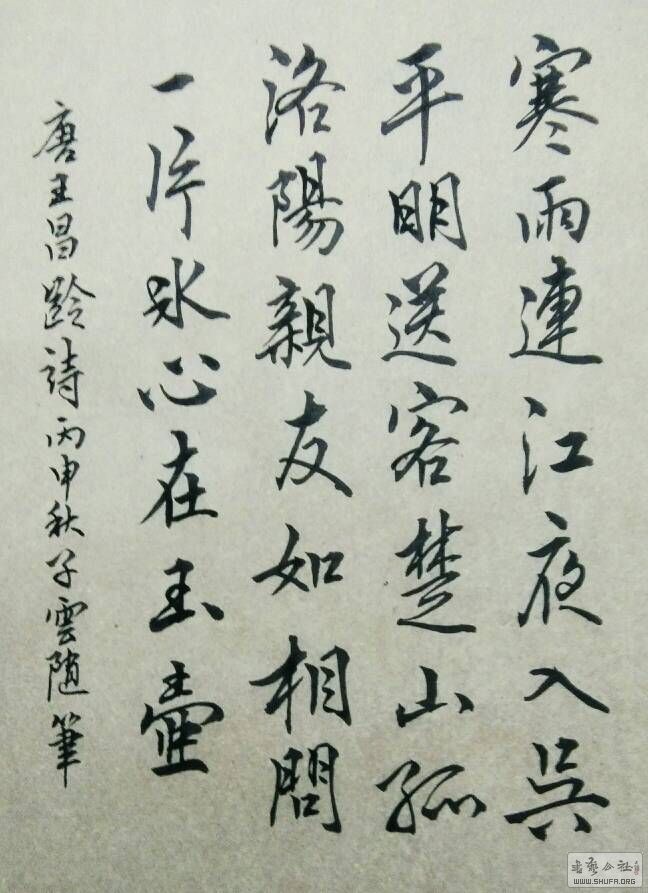 寒雨連江夜入吳
平明送客楚山孤
洛陽親友如相問
一片冰心在玉壺
唐王昌齡詩丙申秋子雲随筆
書藝公社
WWW.SHUFA.ORG